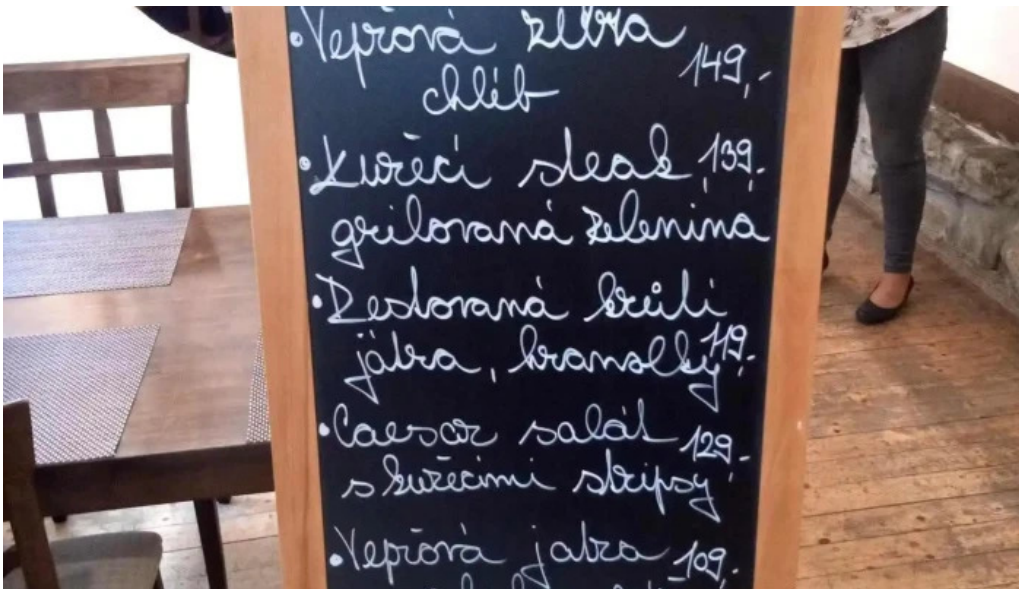 • Vepřová žebra 149,-
chléb
• Kuřecí steak 139,-
grilovaná zelenina
• Restovaná králičí
játra, hranolky 119,-
• Caesar salát 129,-
s kuřecími stripsy
• Vepřová játra 109,-